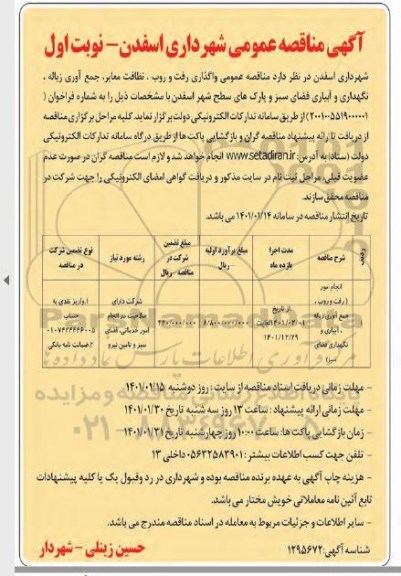 آگهی مناقصه عمومی شهرداری اسفدن – نوبت اول
شهرداری اسفدن در نظر دارد مناقصه عمومی واگذاری رفت و روب ، نظافت معابر، جمع آوری زباله ،
نگهداری و آبیاری فضای سبز و پارک های سطح شهر اسفدن با مشخصات ذیل را به شماره فراخوان (
۲۰۰۱۰۵۵۱۹۰۰۰۰۰۱) از طریق سامانه تدارکات الکترونیکی دولت برگزار نماید. کلیه مراحل برگزاری مناقصه
از دریافت تا ارائه پیشنهاد مناقصه گران و بازگشایی پاکت ها از طریق درگاه سامانه تدارکات الکترونیکی
دولت (ستاد) به آدرس: www.setadiran.ir انجام خواهد شد و لازم است مناقصه گران در صورت عدم
عضویت قبلی، مراحل ثبت نام در سایت مذکور و دریافت گواهی امضای الکترونیکی را جهت شرکت در
مناقصه محقق سازند.
تاریخ انتشار مناقصه در سامانه ۱۴۰۱/۰۱/۱۴ می باشد.
ردیف شرح مناقصه مدت اجرا یازده ماه مبلغ برآورد اولیه ریال مبلغ تضمین شرکت در مناقصه - ریال رشته مورد نیاز نوع تضمین شرکت در مناقصه
انجام امور (رفت و روب ، جمع آوری زباله ، آبیاری و نگهداری فضای سبز) از تاریخ ۱۴۰۱/۰۲/۰۱ لغایت ۱۴۰۱/۱۲/۲۹ ۸/۸۰۰/۰۰۰/۰۰۰ ۴۴۰/۰۰۰/۰۰۰ شرکت دارای صلاحیت در انجام امور خدماتی، فضای سبز و تامین نیرو ۱.واریز نقدی به حساب ۲.ضمانت نامه بانکی
– مهلت زمانی دریافت اسناد مناقصه از سایت : روز دوشنبه ۱۴۰۱/۰۱/۱۵
– مهلت زمانی ارائه پیشنهاد : ساعت ۱۳ روز سه شنبه تاریخ ۱۴۰۱/۰۱/۳۰
– زمان بازگشایی پاکت ها: ساعت ۱۰:۰۰ روز چهارشنبه تاریخ ۱۴۰۱/۰۱/۳۱
– تلفن جهت کسب اطلاعات بیشتر : ۰۵۶۳۲۵۸۳۹۰۱ داخلی ۱۳
– هزینه چاپ آگهی به عهده برنده مناقصه بوده و شهرداری در رد و قبول یک یا کلیه پیشنهادات
تابع آئین نامه معاملاتی خویش مختار می باشد.
– سایر اطلاعات و جزئیات مربوط به معامله در اسناد مناقصه مندرج می باشد.
شناسه آگهی: ۱۲۹۵۶۷۲ حسین زینلی – شهردار